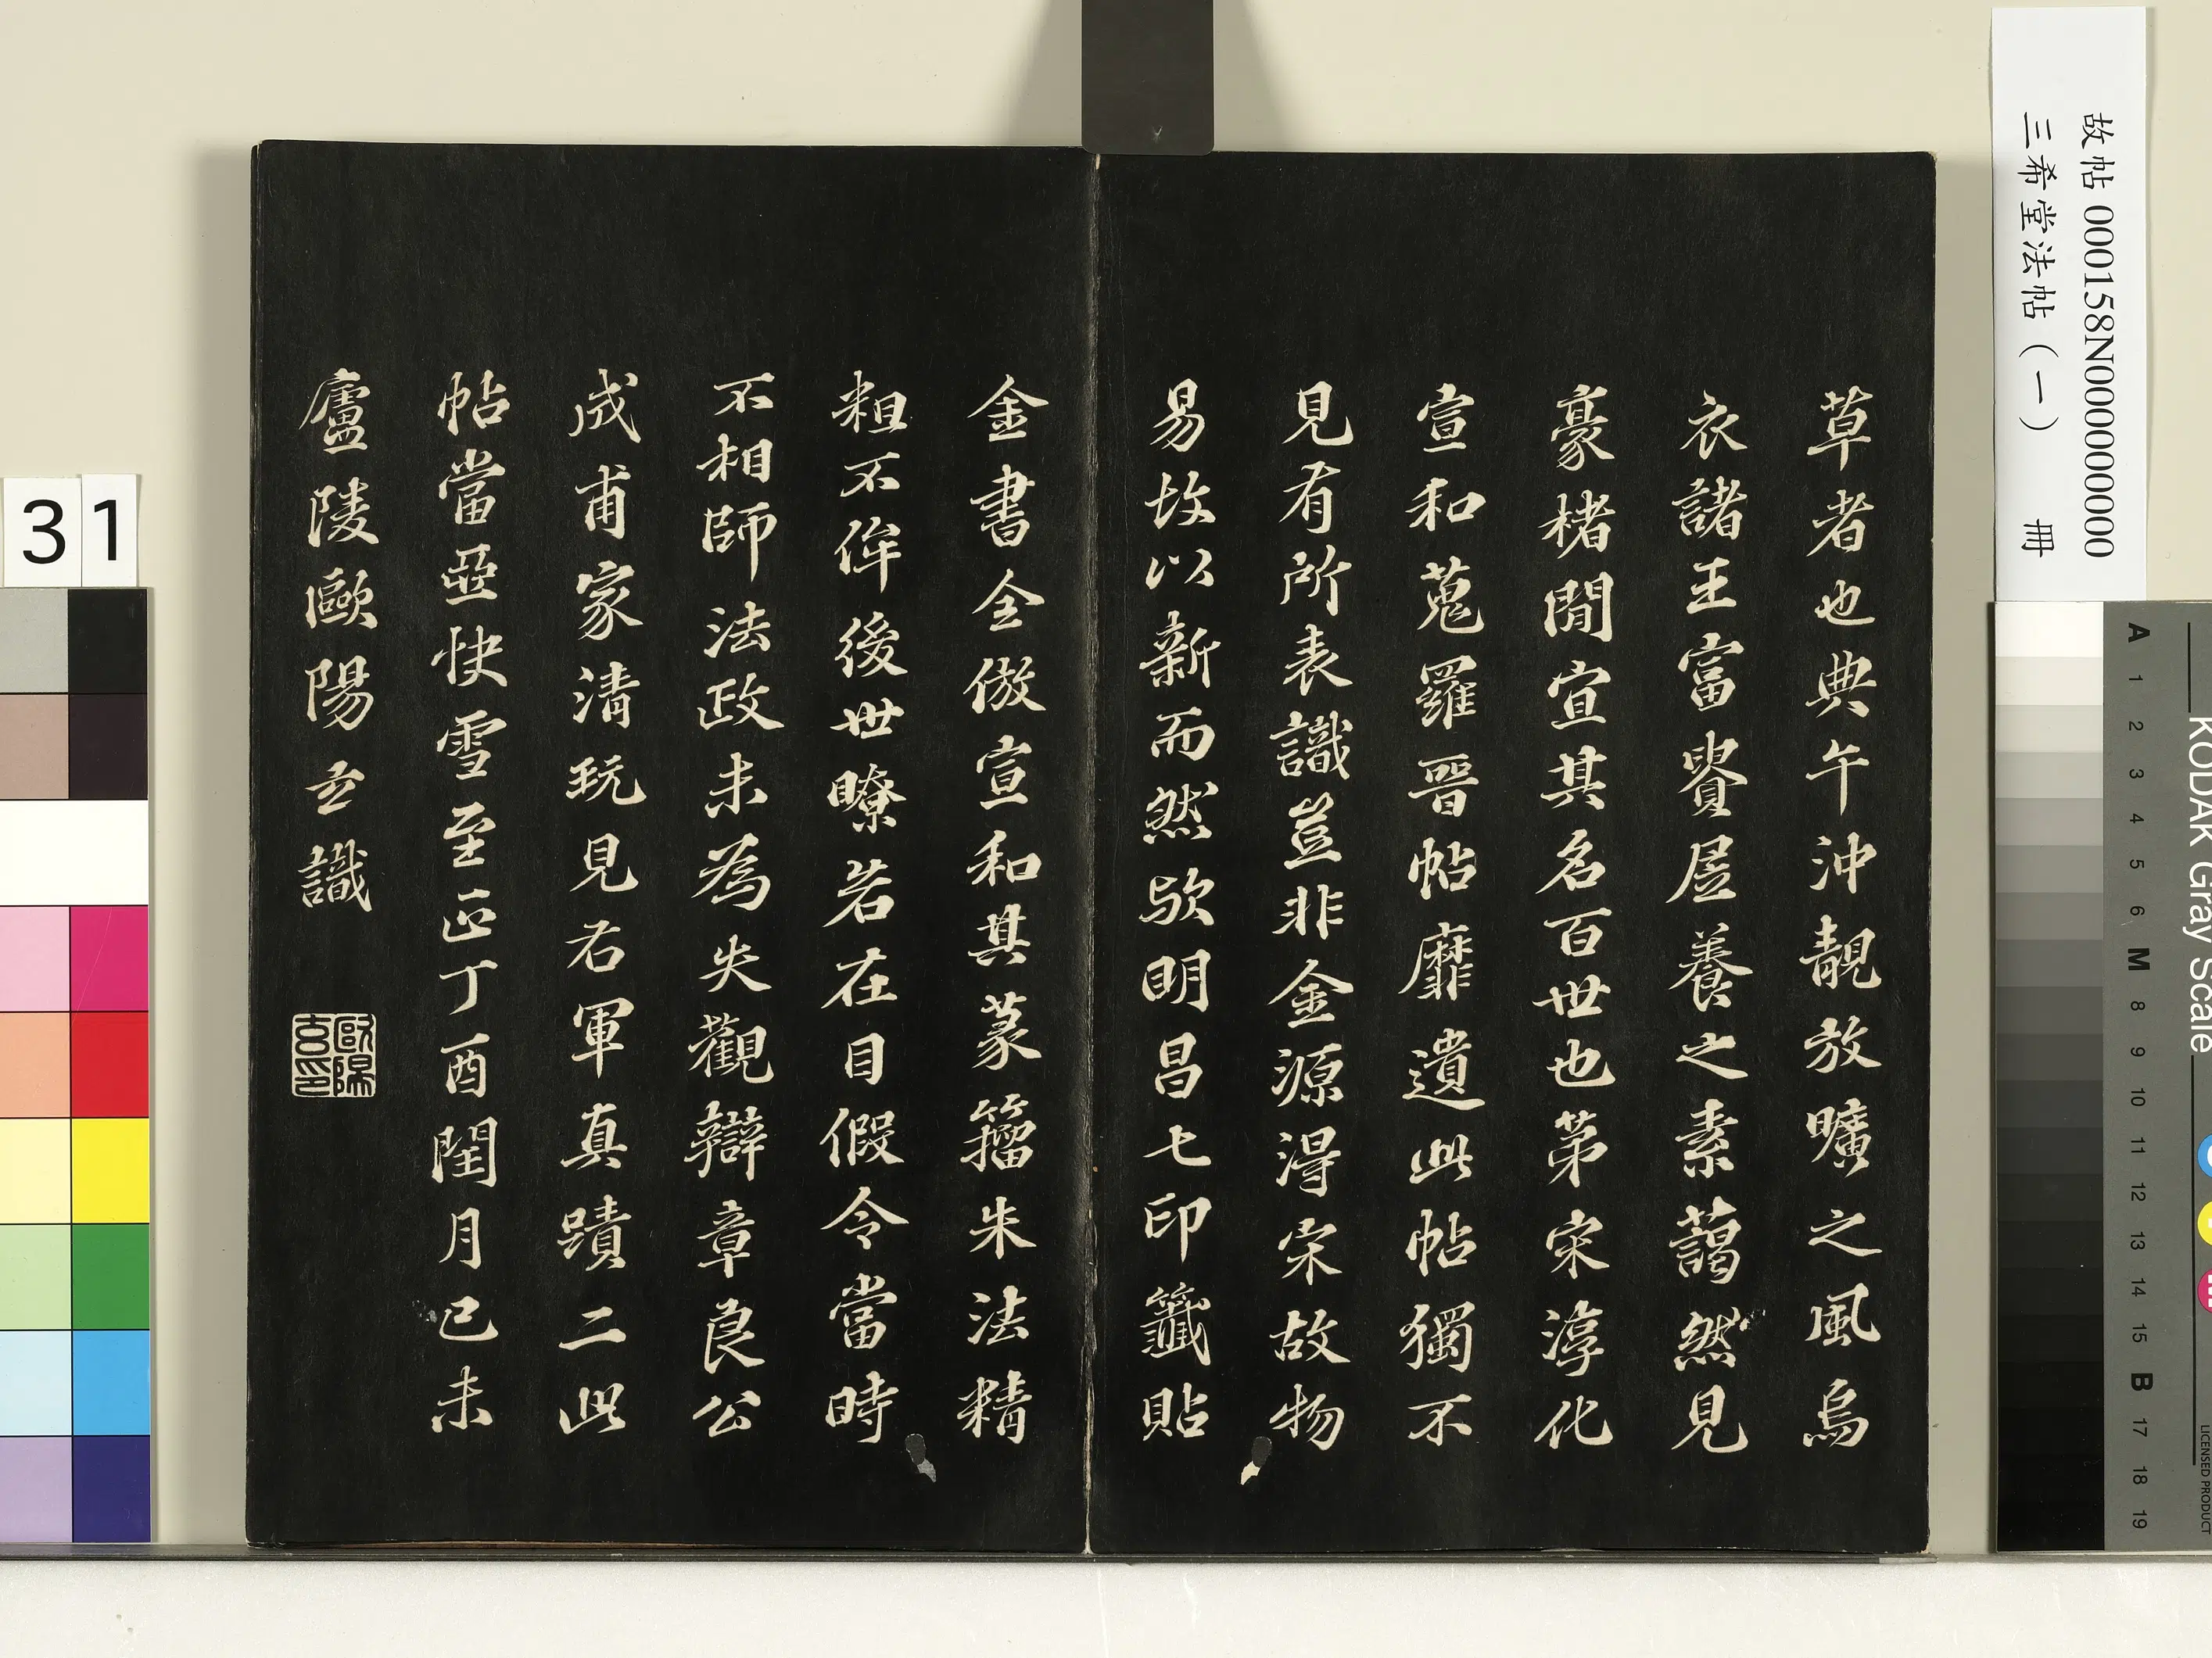 草者也典午沖靚放曠之風烏
衣諸王富貴居養之素藹然見
豪楮間宣其名百世也第宋淳化
宣和蒐羅晉帖靡遺此帖獨不
見有所表識豈非金源淂宋故物
易故以新而然歟明昌七印籤貼
金書全倣宣和其篆籀朱法精
粗不侔後世瞭若在目假令當時
不相師法政未為失觀辯章良公
成甫家清玩見右軍真蹟二此
帖當亞快雪至正丁酉閏月己未
廬陵歐陽玄識
歐陽玄印
故帖 000158N000000000
三希堂法帖（一） 冊
31
KODAK Gray Scale
LICENSED PRODUCT
A 1 2 3 4 5 6 M 8 9 10 11 12 13 14 15 B 17 18 19